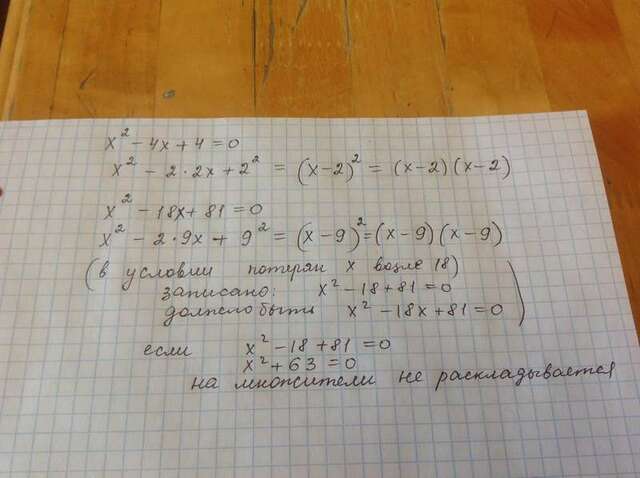 x² - 4x + 4 = 0
x² - 2 · 2x + 2² = (x-2)² = (x-2)(x-2)
x² - 18x + 81 = 0
x² - 2 · 9x + 9² = (x-9)² = (x-9)(x-9)
(в условии потерян x возле 18)
записано: x² - 18 + 81 = 0
должно быть x² - 18x + 81 = 0)
если x² - 18 + 81 = 0
x² + 63 = 0
на множители не раскладывается